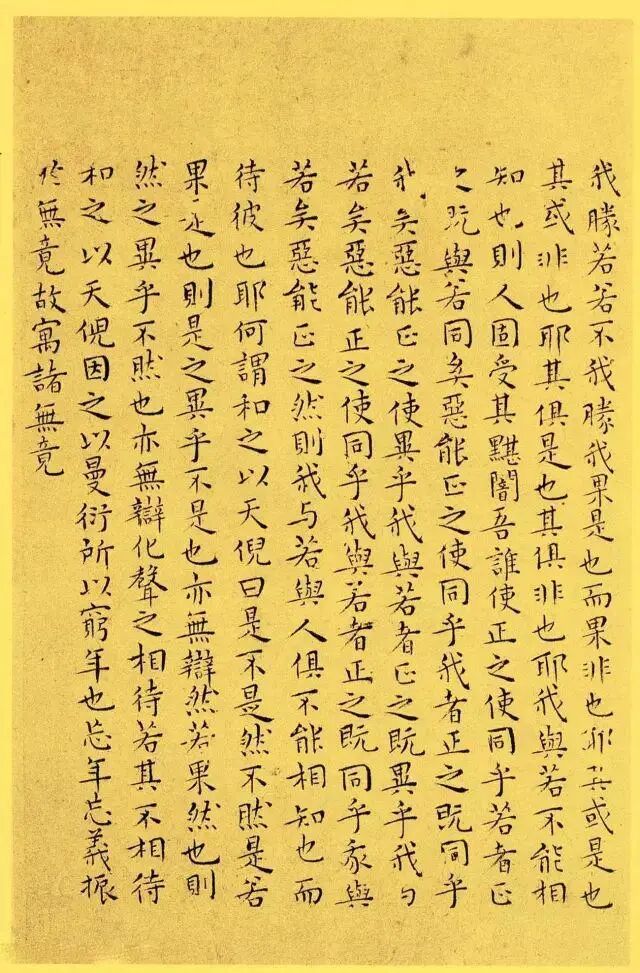 我勝若若不我勝我果是也而果非也耶其或是也
其或非也耶其俱是也其俱非也耶我與若不能相
知也則人固受其黮闇吾誰使正之使同乎若者正
之既與若同矣惡能正之使同乎我者正之既同乎
我矣惡能正之使異乎我與若者正之既異乎我与
若矣惡能正之使同乎我與若者正之既同乎我與
若矣惡能正之然則我与若與人俱不能相知也而
待彼也耶何謂和之以天倪曰是不是然不然是若
果是也則是之異乎不是也亦無辯然若果然也則
然之異乎不然也亦無辯化聲之相待若其不相待
和之以天倪因之以曼衍所以窮年也忘年忘義振
於無竟故寓諸無竟